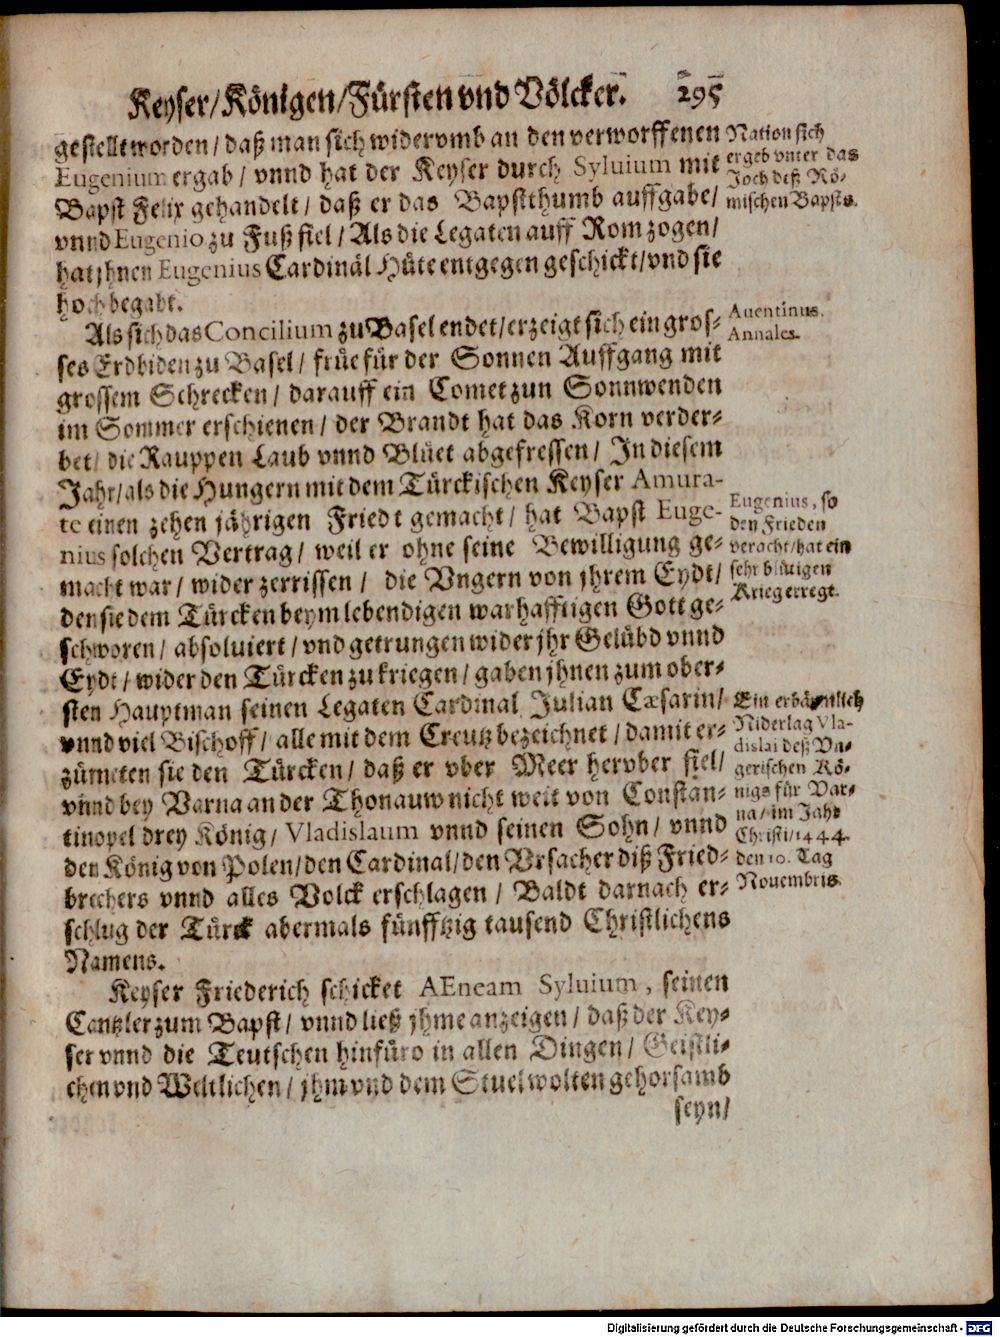 Keyser/Königen/Fürsten vnd Völcker. 295
gestellt worden/ daß man sich widervmb an den verworffenen
Eugenium ergab/ vnnd hat der Keyser durch Syluium mit
Bapst Felix gehandelt/ daß er das Bapstthumb auffgabe/
vnnd Eugenio zu Fuß fiel/ Als die Legaten auff Rom zogen/
hat jhnen Eugenius Cardinäl Hüte entgegen geschickt/vnd sie
hoch begabt.
Nation sich
ergeb vnter das
Joch deß Rö-
mischen Bapsts.
Als sich das Concilium zu Basel endet/erzeigt sich ein gros-
ses Erdbiden zu Basel/ früe für der Sonnen Auffgang mit
grossem Schrecken/ darauff ein Comet zun Sonnwenden
im Sommer erschienen/ der Brandt hat das Korn verder-
bet/ die Rauppen Laub vnnd Blüet abgefressen/ In diesem
Jahr/als die Hungern mit dem Türckischen Keyser Amura-
te einen zehen jährigen Friedt gemacht/ hat Bapst Euge-
nius solchen Vertrag/ weil er ohne seine Bewilligung ge-
macht war/ wider zerrissen/ die Vngern von jhrem Eydt/
den sie dem Türcken beym lebendigen warhafftigen Gott ge-
schworen/ absoluiert/ vnd getrungen wider jhr Gelübd vnnd
Eydt/ wider den Türcken zu kriegen/ gaben jhnen zum ober-
sten Hauptman seinen Legaten Cardinal Julian Cæsarin/
vnnd viel Bischoff/ alle mit dem Creutz bezeichnet/ damit er-
zürneten sie den Türcken/ daß er vber Meer hervber fiel/
vnnd bey Varna an der Thonauw nicht weit von Constan-
tinopel drey König/ Vladislaum vnnd seinen Sohn/ vnnd
den König von Polen/den Cardinal/den Vrsacher diß Fried-
brechers vnnd alles Volck erschlagen/ Baldt darnach er-
schlug der Türck abermals fünfftzig tausend Christlichens
Namens.
Auentinus.
Annales.
Eugenius, so
den Frieden
veracht/hat ein
sehr blütigen
Krieg erregt.
Ein erbärmlich
Niderlag Vla-
dislai deß Vn-
gerischen Kö-
nigs für Var-
na/ im Jahr
Christi/1444.
den 10. Tag
Nouembris.
Keyser Friederich schicket AEneam Syluium, seinen
Cantzler zum Bapst/ vnnd ließ jhme anzeigen/ daß der Key-
ser vnnd die Teutschen hinfüro in allen Dingen/ Geistli-
chen vnd Weltlichen/ jhm vnd dem Stuel wolten gehorsamb
seyn/
Digitalisierung gefördert durch die Deutsche Forschungsgemeinschaft - DFG